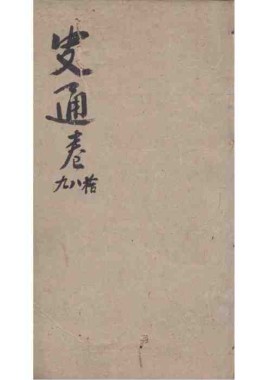 史通卷
拾八九